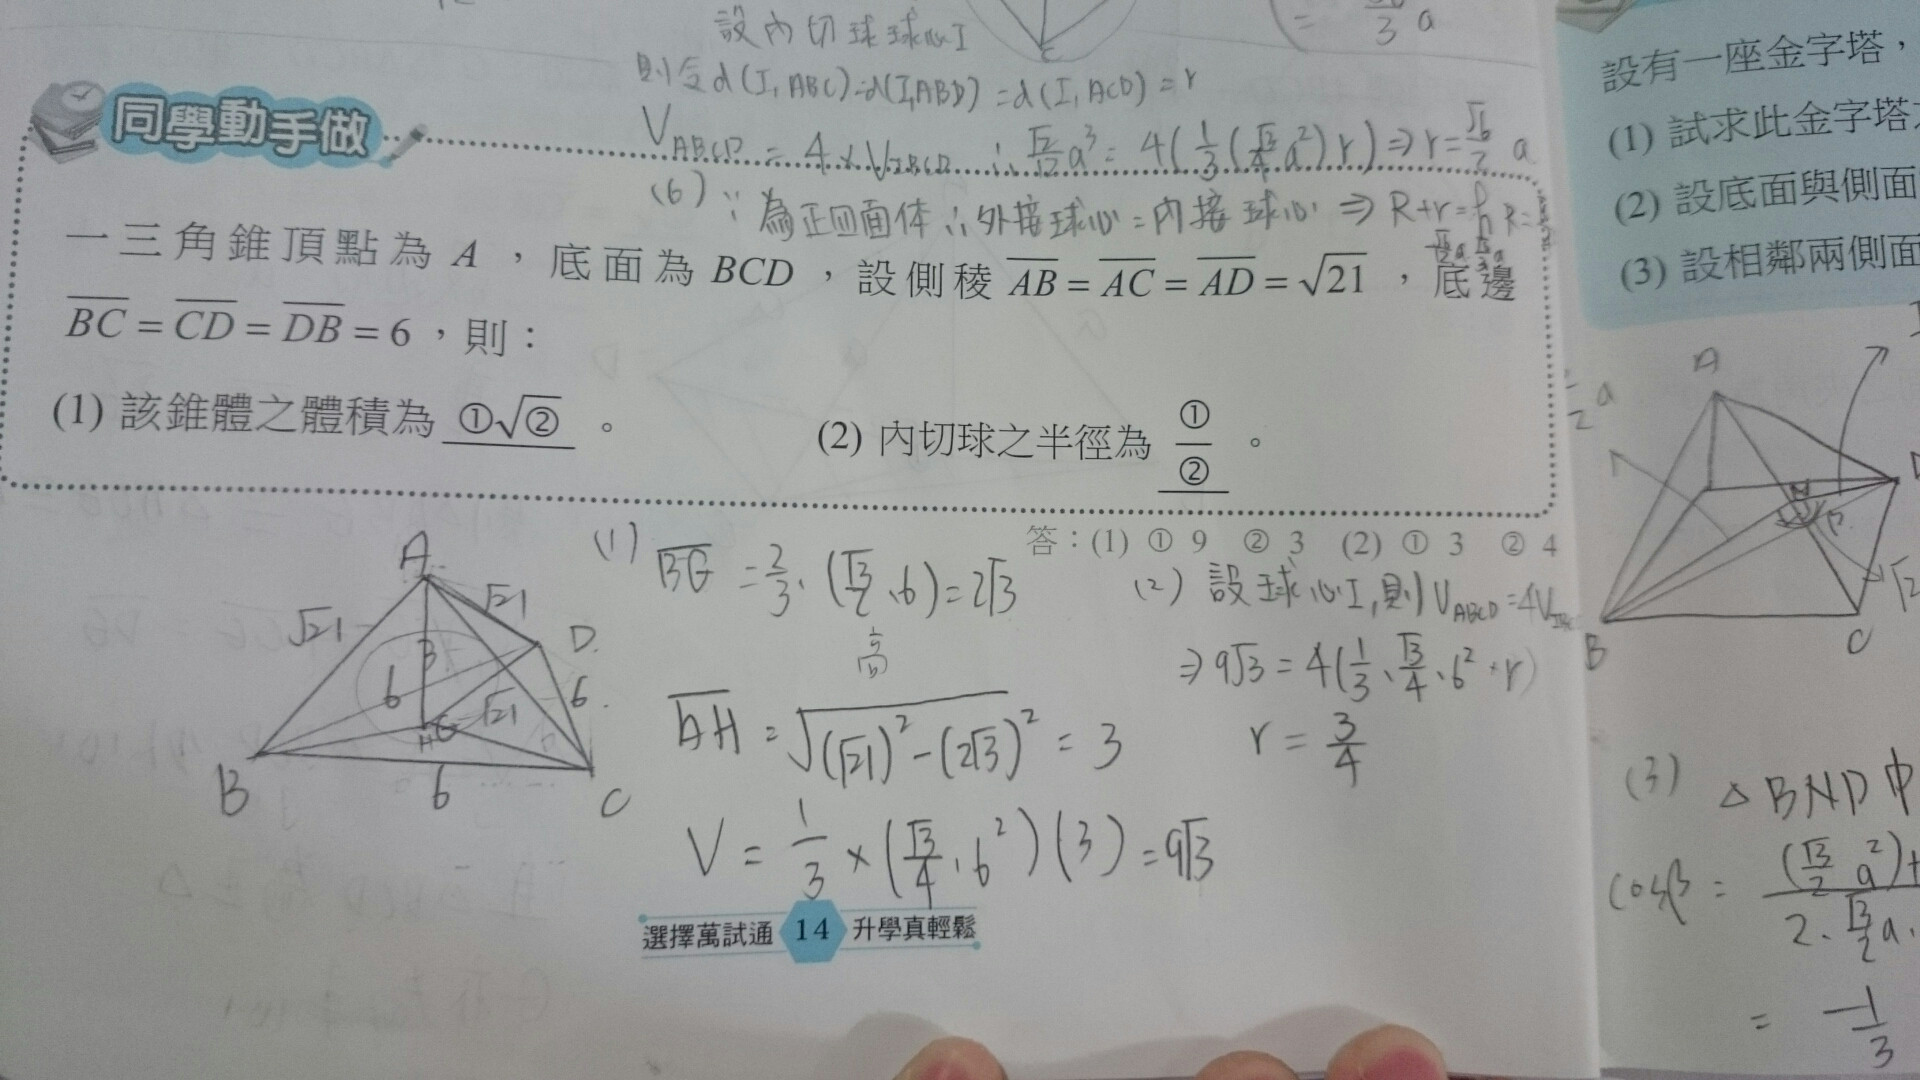 設內切球球心I
= 3 a
則令 d(I, ABC)=d(I,ABD)=d(I,ACD)=r
V_ABCD = 4×V_IBCD ∴ √2/12 a³ = 4(1/3(√3/4 a²)r) ⇒ r=
(6) ∵為正四面体∴外接球心=內接球心 ⇒ R+r=h
同學動手做
一三角錐頂點為 A，底面為 BCD，設側稜 AB = AC = AD = √21，底邊
BC = CD = DB = 6，則：
(1) 該錐體之體積為 ①√② 。 (2) 內切球之半徑為 ①/② 。
答：(1) ① 9 ② 3 (2) ① 3 ② 4
A
√21
√21
D
3
6
√21
6
H
G
B
6
C
(1) BG = 2/3·(√3/2·6) = 2√3
高
AH = √((√21)²-(2√3)²) = 3
V = 1/3×(√3/4·6²)(3) = 9√3
(2) 設球心I,則V_ABCD=4V
⇒ 9√3 = 4(1/3·√3/4·6²·r)
r = 3/4
選擇萬試通 14 升學真輕鬆
設有一座金字塔，
(1) 試求此金字塔
(2) 設底面與側面
(3) 設相鄰兩側面
A
B
C
(3) △BHD中
cosβ = (√3/2 a²)+ / 2·√3/2 a·
= -1/3